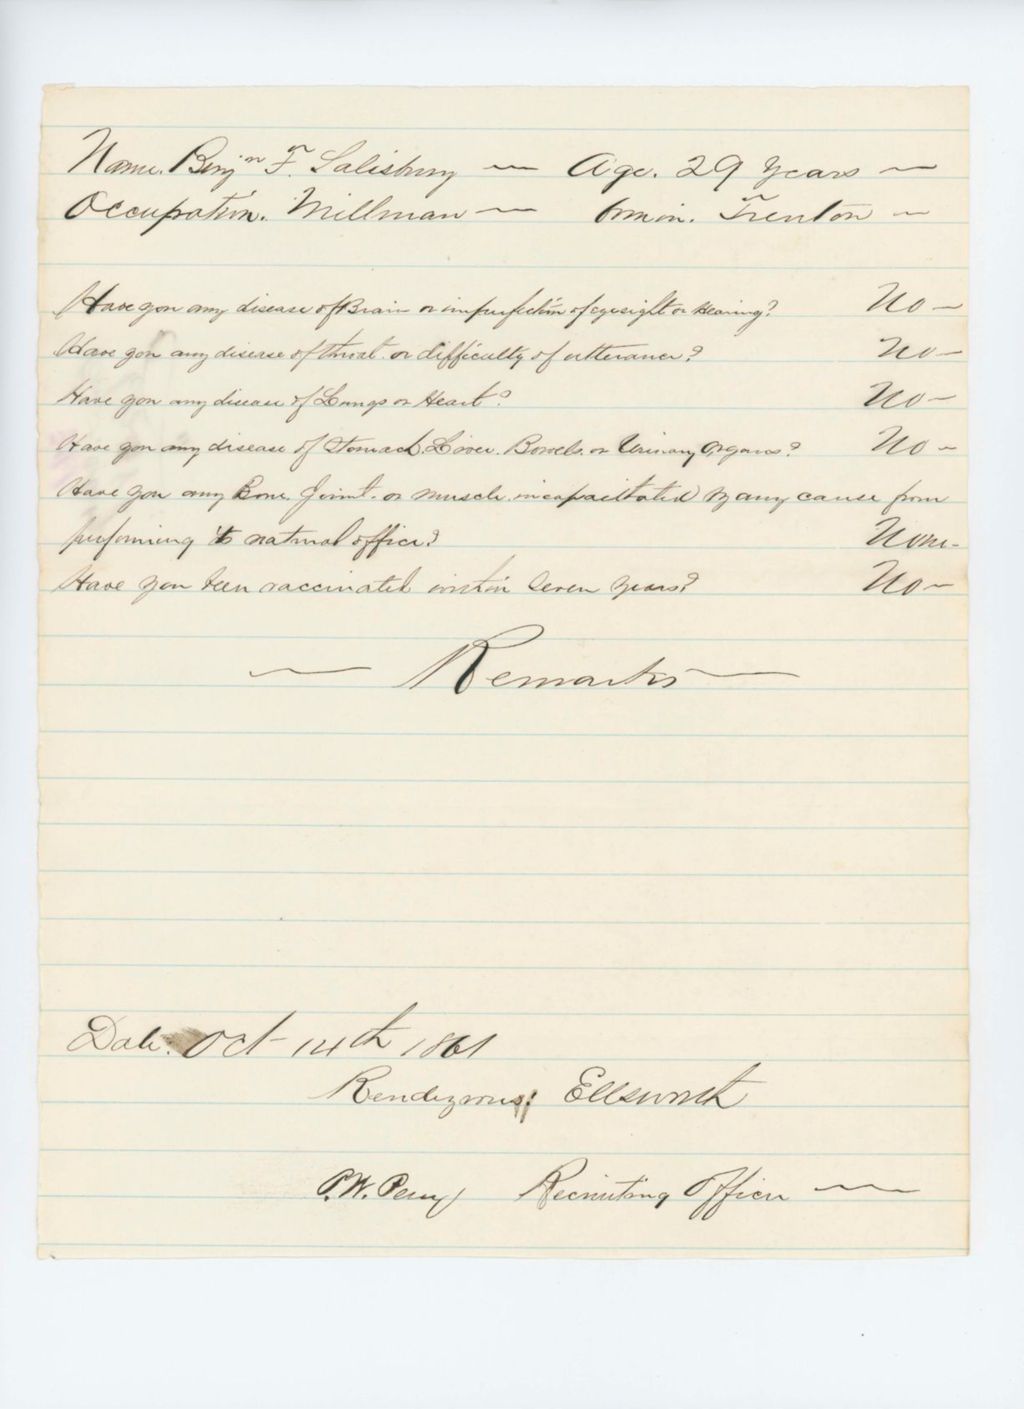 Name. Benjn F. Salisbury — Age. 29 Years —
Occupation. Millman — Trenton —
Have you any disease of Brain or imperfection of eyesight or Hearing? No —
Have you any disease of throat or difficulty of utterance? No —
Have you any disease of Lungs or Heart? No —
Have you any disease of Stomach, Liver. Bowels. or Urinary Organs? No —
Have you any Bone. Joint. or muscle. incapacitated by any cause from
performing its natural office? None —
Have you been vaccinated within seven years? No —
— Remarks —
Date. Oct 14th 1861
Rendezvous: Ellsworth
P. W. Perry Recruiting Officer —